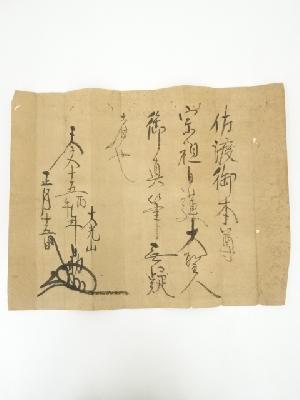 佐渡御本尊
宗祖日蓮大聖人
御真筆無疑
者也
天文十五丙午年
大光山
正月十五日